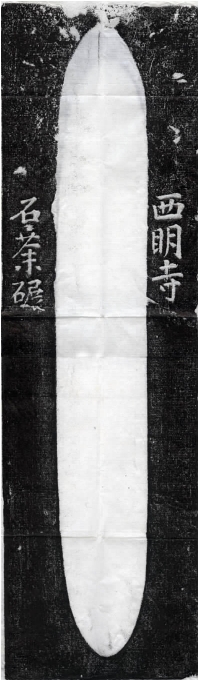 西明寺
石茶碾